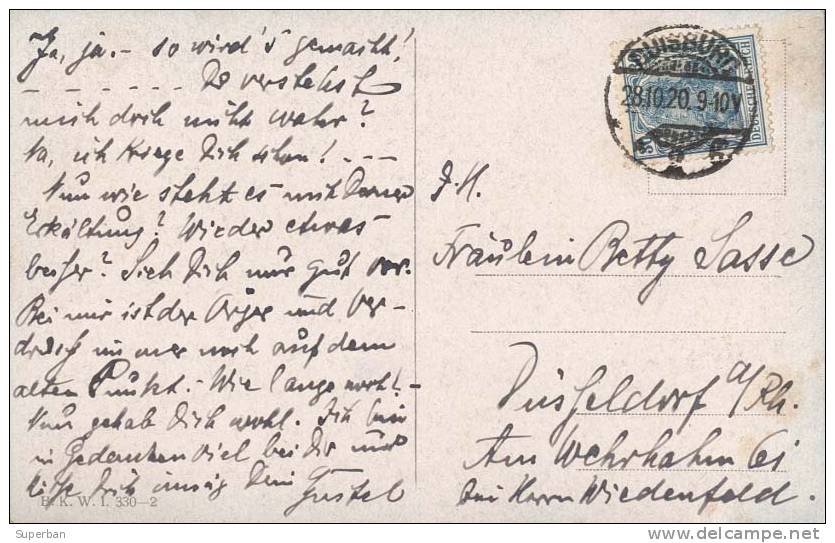 Ja, ja. - so wird's gemacht!
- - - - - - - Du verstehst
mich doch nicht wahr?
Na, ich kriege Dich schon! - - -
Nun wie steht es mit Deiner
Erkältung? Wieder etwas
besser? Sieh Dich nur gut vor.
Bei mir ist der Ärger und Ver-
druss immer noch auf dem
alten Punkt. - Wie lange noch! -
Nun gehab Dich wohl. Ich bin
in Gedanken viel bei Dir und
küsse Dich innig Dein
Gustel
B. K. W. I. 330-2
DUISBURG
28.10.20. 9-10V
DEUTSCHES REICH
Fräulein Betty Sasse
Düsseldorf a/Rh.
Am Wehrhahn 61
bei Herrn Wiedenfeld.
Superban
www.delcampe.net